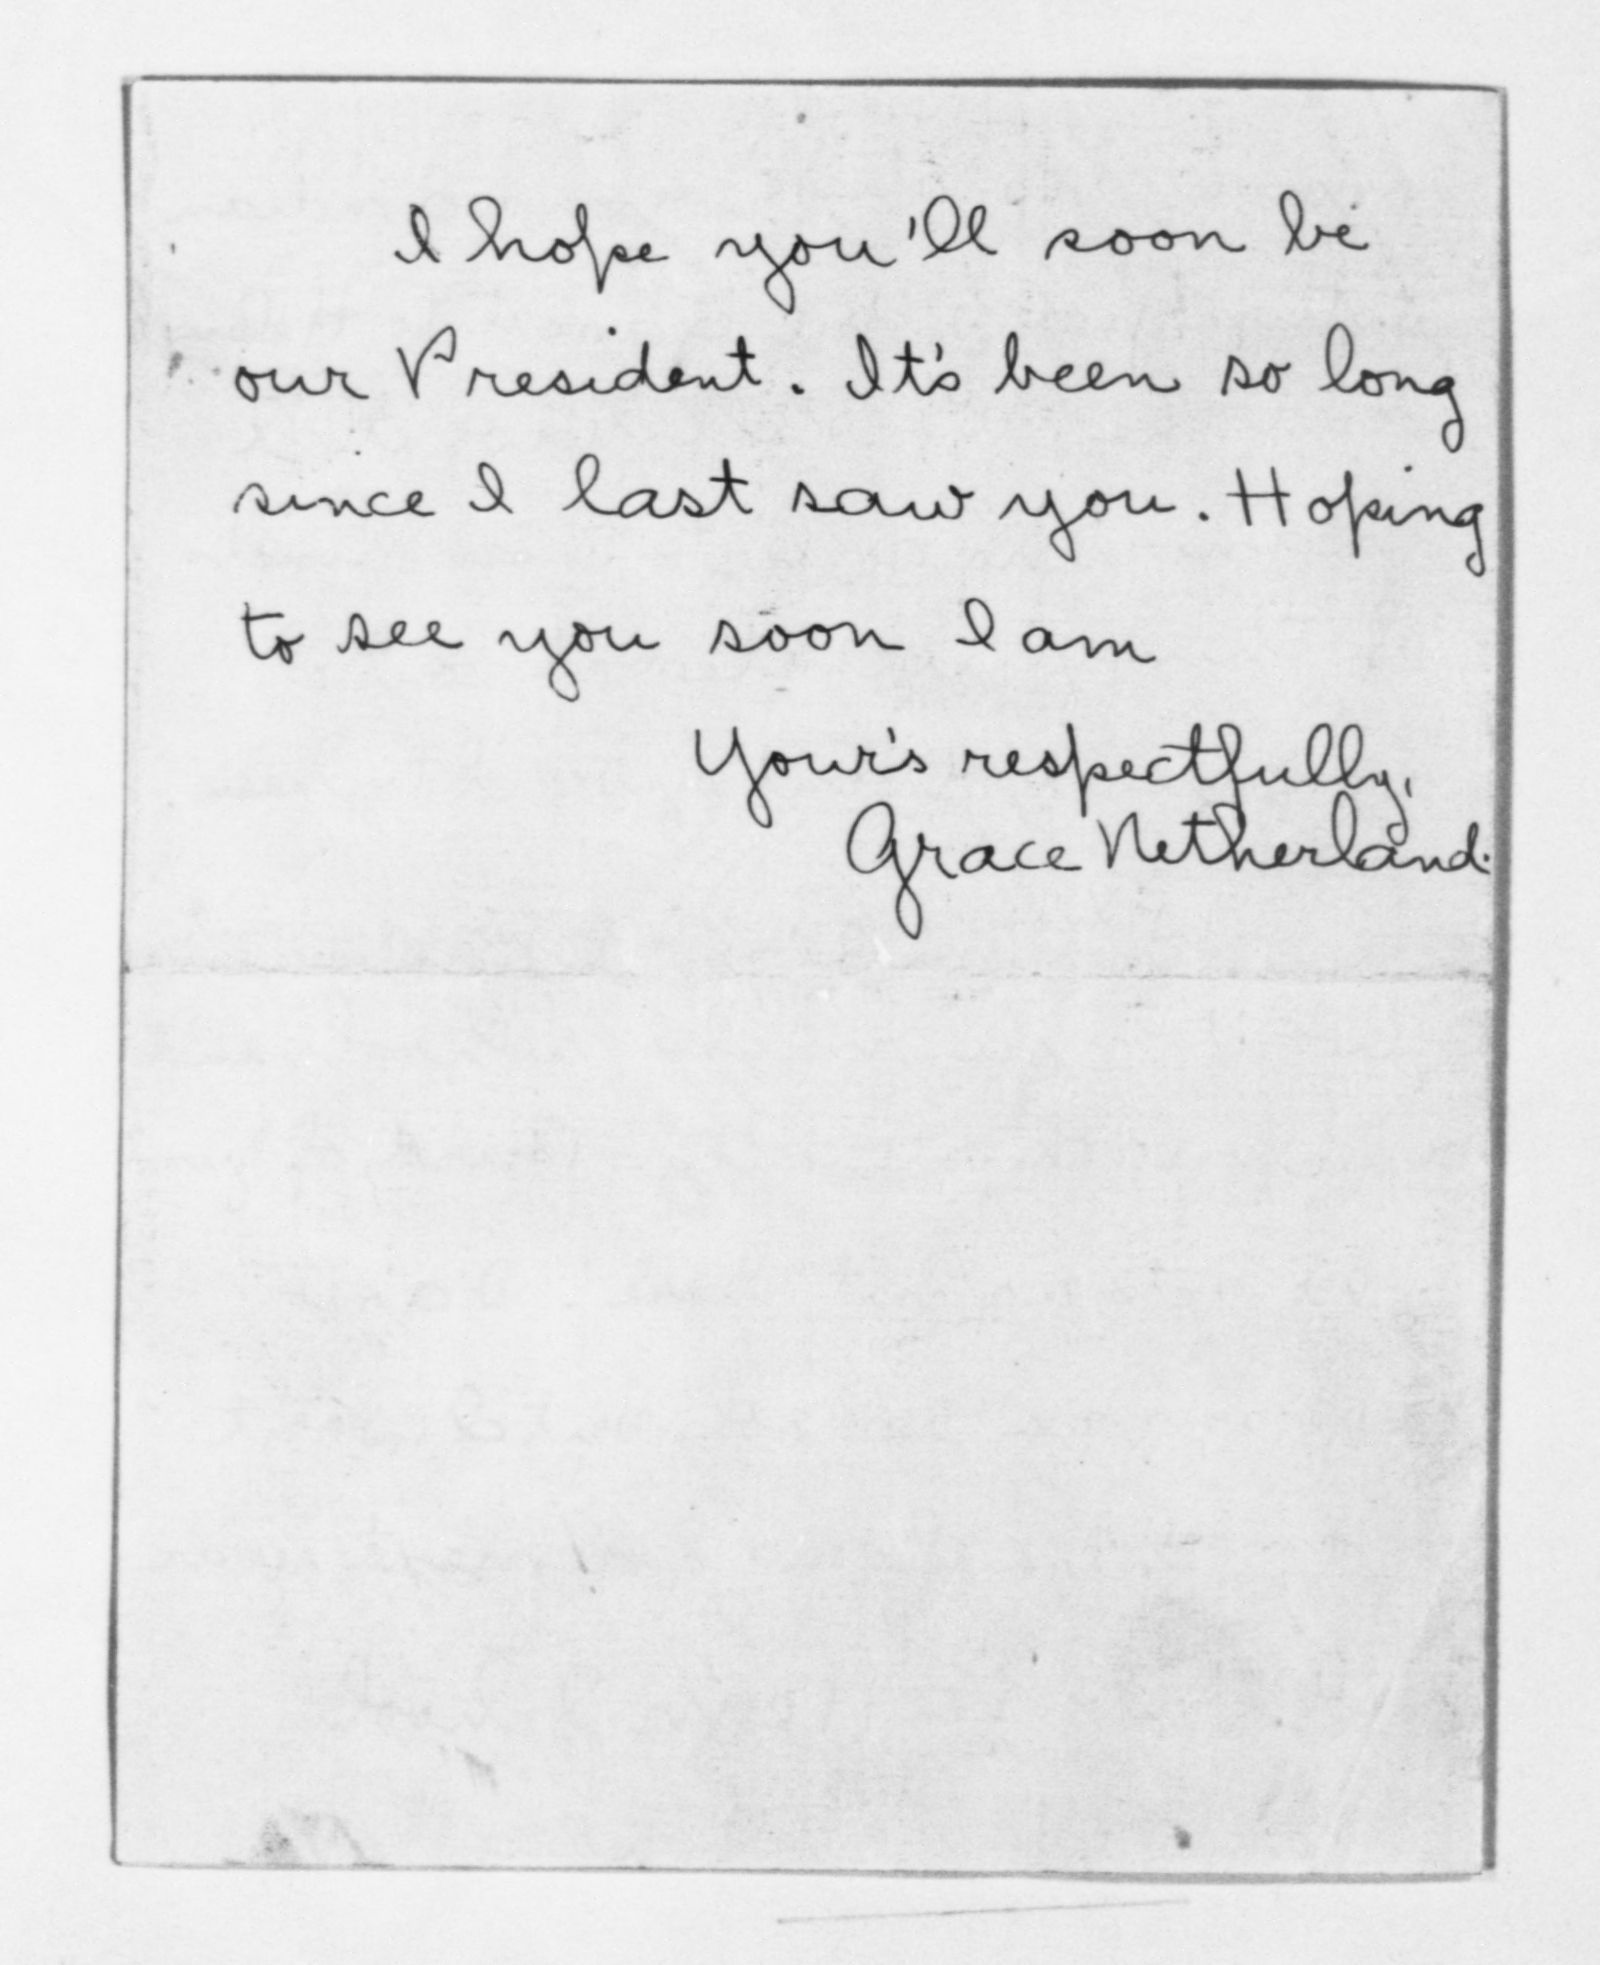 I hope you'll soon be
our President. It's been so long
since I last saw you. Hoping
to see you soon I am
Your's respectfully,
Grace Netherland.